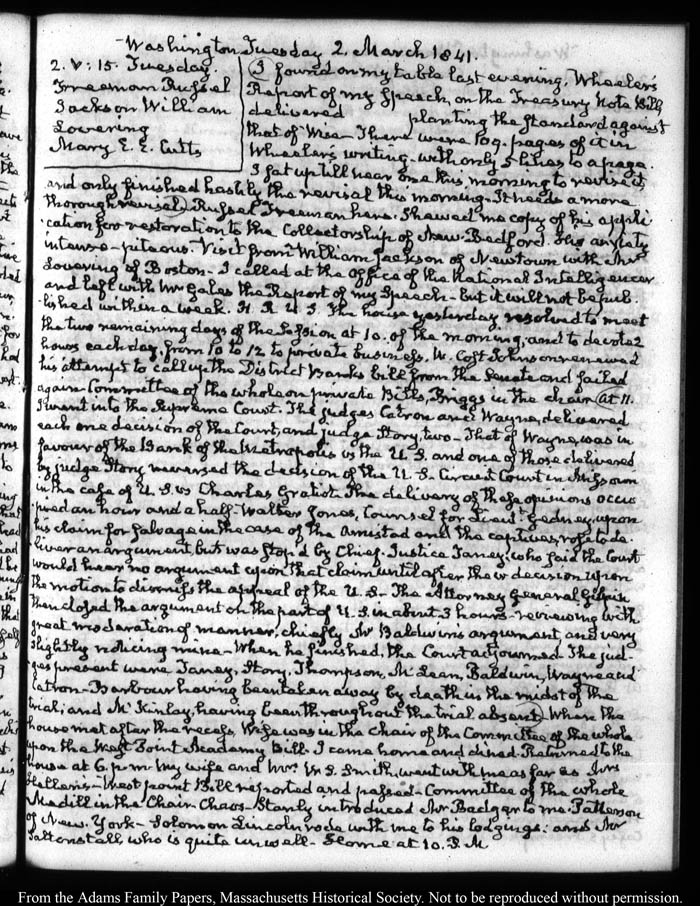 Washington Tuesday 2. March 1841.
2. V: 15. Tuesday.
Freeman Russel
Jackson William
Lovering
Mary E. E. Cutts
I found on my table last evening, Wheeler's
Report of my Speech, on the Treasury Note Bill
delivered planting the Standard against
that of Wise— There were 109 pages of it in
Wheeler's writing— with only 5 lines to a page.
I sat up till near one this morning to revise it
and only finished hastily the revisal this morning. It needs a more
thorough revisal. Russel Freeman here. Shewed me copy of his appli-
cation for restoration to the Collectorship of New-Bedford. His anxiety
intense— piteous. Visit from William Jackson of Newtown with Mr
Lovering of Boston— I called at the office of the National Intelligencer
and left with Mr Gales the Report of my Speech— but it will not be pub-
lished within a week. H. R. U S. The house yesterday resolved to meet
the two remaining days of the Session at 10. of the morning, and to devote 2
hours each day, from 10 to 12 to private business, W. Cost Johnson renewed
his attempt to call up the District Banks bill from the Senate and failed
again Committee of the whole on private Bills, Briggs in the chair. At 11.
I went into the Supreme Court. The judges Catron and Wayne, delivered
each one decision of the Court, and judge Story, two— That of Wayne, was in
favour of the Bank of the Metropolis vs the U. S. and one of those delivered
by judge Story reversed the decision of the U. S. Circuit Court in Missouri
in the case of U. S. vs Charles Gratiot. The delivery of these opinions occu-
pied an hour and a half— Walter Jones, Counsel for Lieut. Gedney, upon
his claim for Salvage in the case of the Amistad and the captives, rose to de-
liver an argument, but was stop'd by Chief-Justice Taney, who said the Court
would hear no argument upon that claim until after their decision upon
the motion to dismiss the appeal of the U. S— The Attorney General Gilpin
then closed the argument on the part of U. S. in about 3 hours— reviewing with
great moderation of manner, chiefly Mr Baldwin's argument, and very
slightly noticing mine— When he finished, the Court adjourned— The jud-
ges present were Taney, Story, Thompson, McLean, Baldwin, Wayne and
Catron— Barbour having been taken away by death in the midst of the
trial; and McKinley, having been throughout the trial absent. When the
house met after the recess, Wise was in the chair of the Committee of the whole
upon the West Point Academy Bill— I came home and dined. Returned to the
house at 6. p.m. My wife and Mrs. W. S. Smith, went with me as far as Mrs
West point Bill reported and passed— Committee of the whole
Medill in the Chair— Chaos— Stanly introduced Mr Badger to me. Patterson
of New-York— Solomon Lincoln rode with me to his lodgings: and Mr
Saltonstall, who is quite unwell— Home at 10. P. M
From the Adams Family Papers, Massachusetts Historical Society. Not to be reproduced without permission.